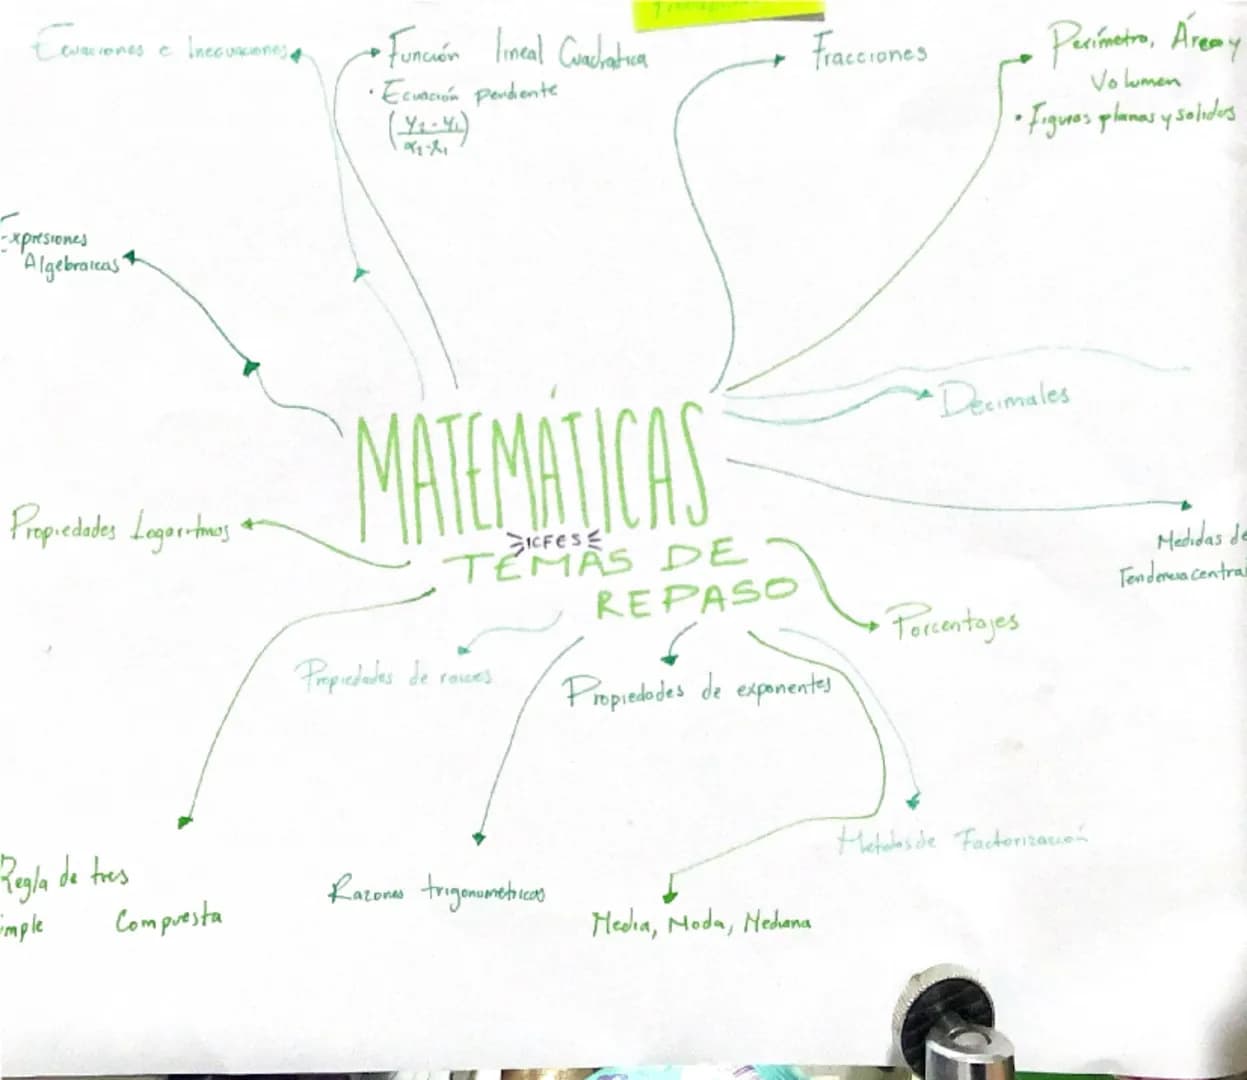 Ecuaciones e Inecuaciones
Función lineal Cuadratica
· Ecuación pendiente
(y₂-y₁)
x₂-x₁
Fracciones
Perímetro, Área y
Volumen
· Figuras planas y solidos
Expresiones
Algebraicas
Decimales
MATEMÁTICAS
ICFES
TEMAS DE
REPASO
Propiedades Logaritmos
Medidas de
Tendencia central
Porcentajes
Propiedades de raices
Propiedades de exponentes
Metodos de Factorización
Regla de tres
imple Compuesta
Razones trigonometricas
Media, Moda, Mediana